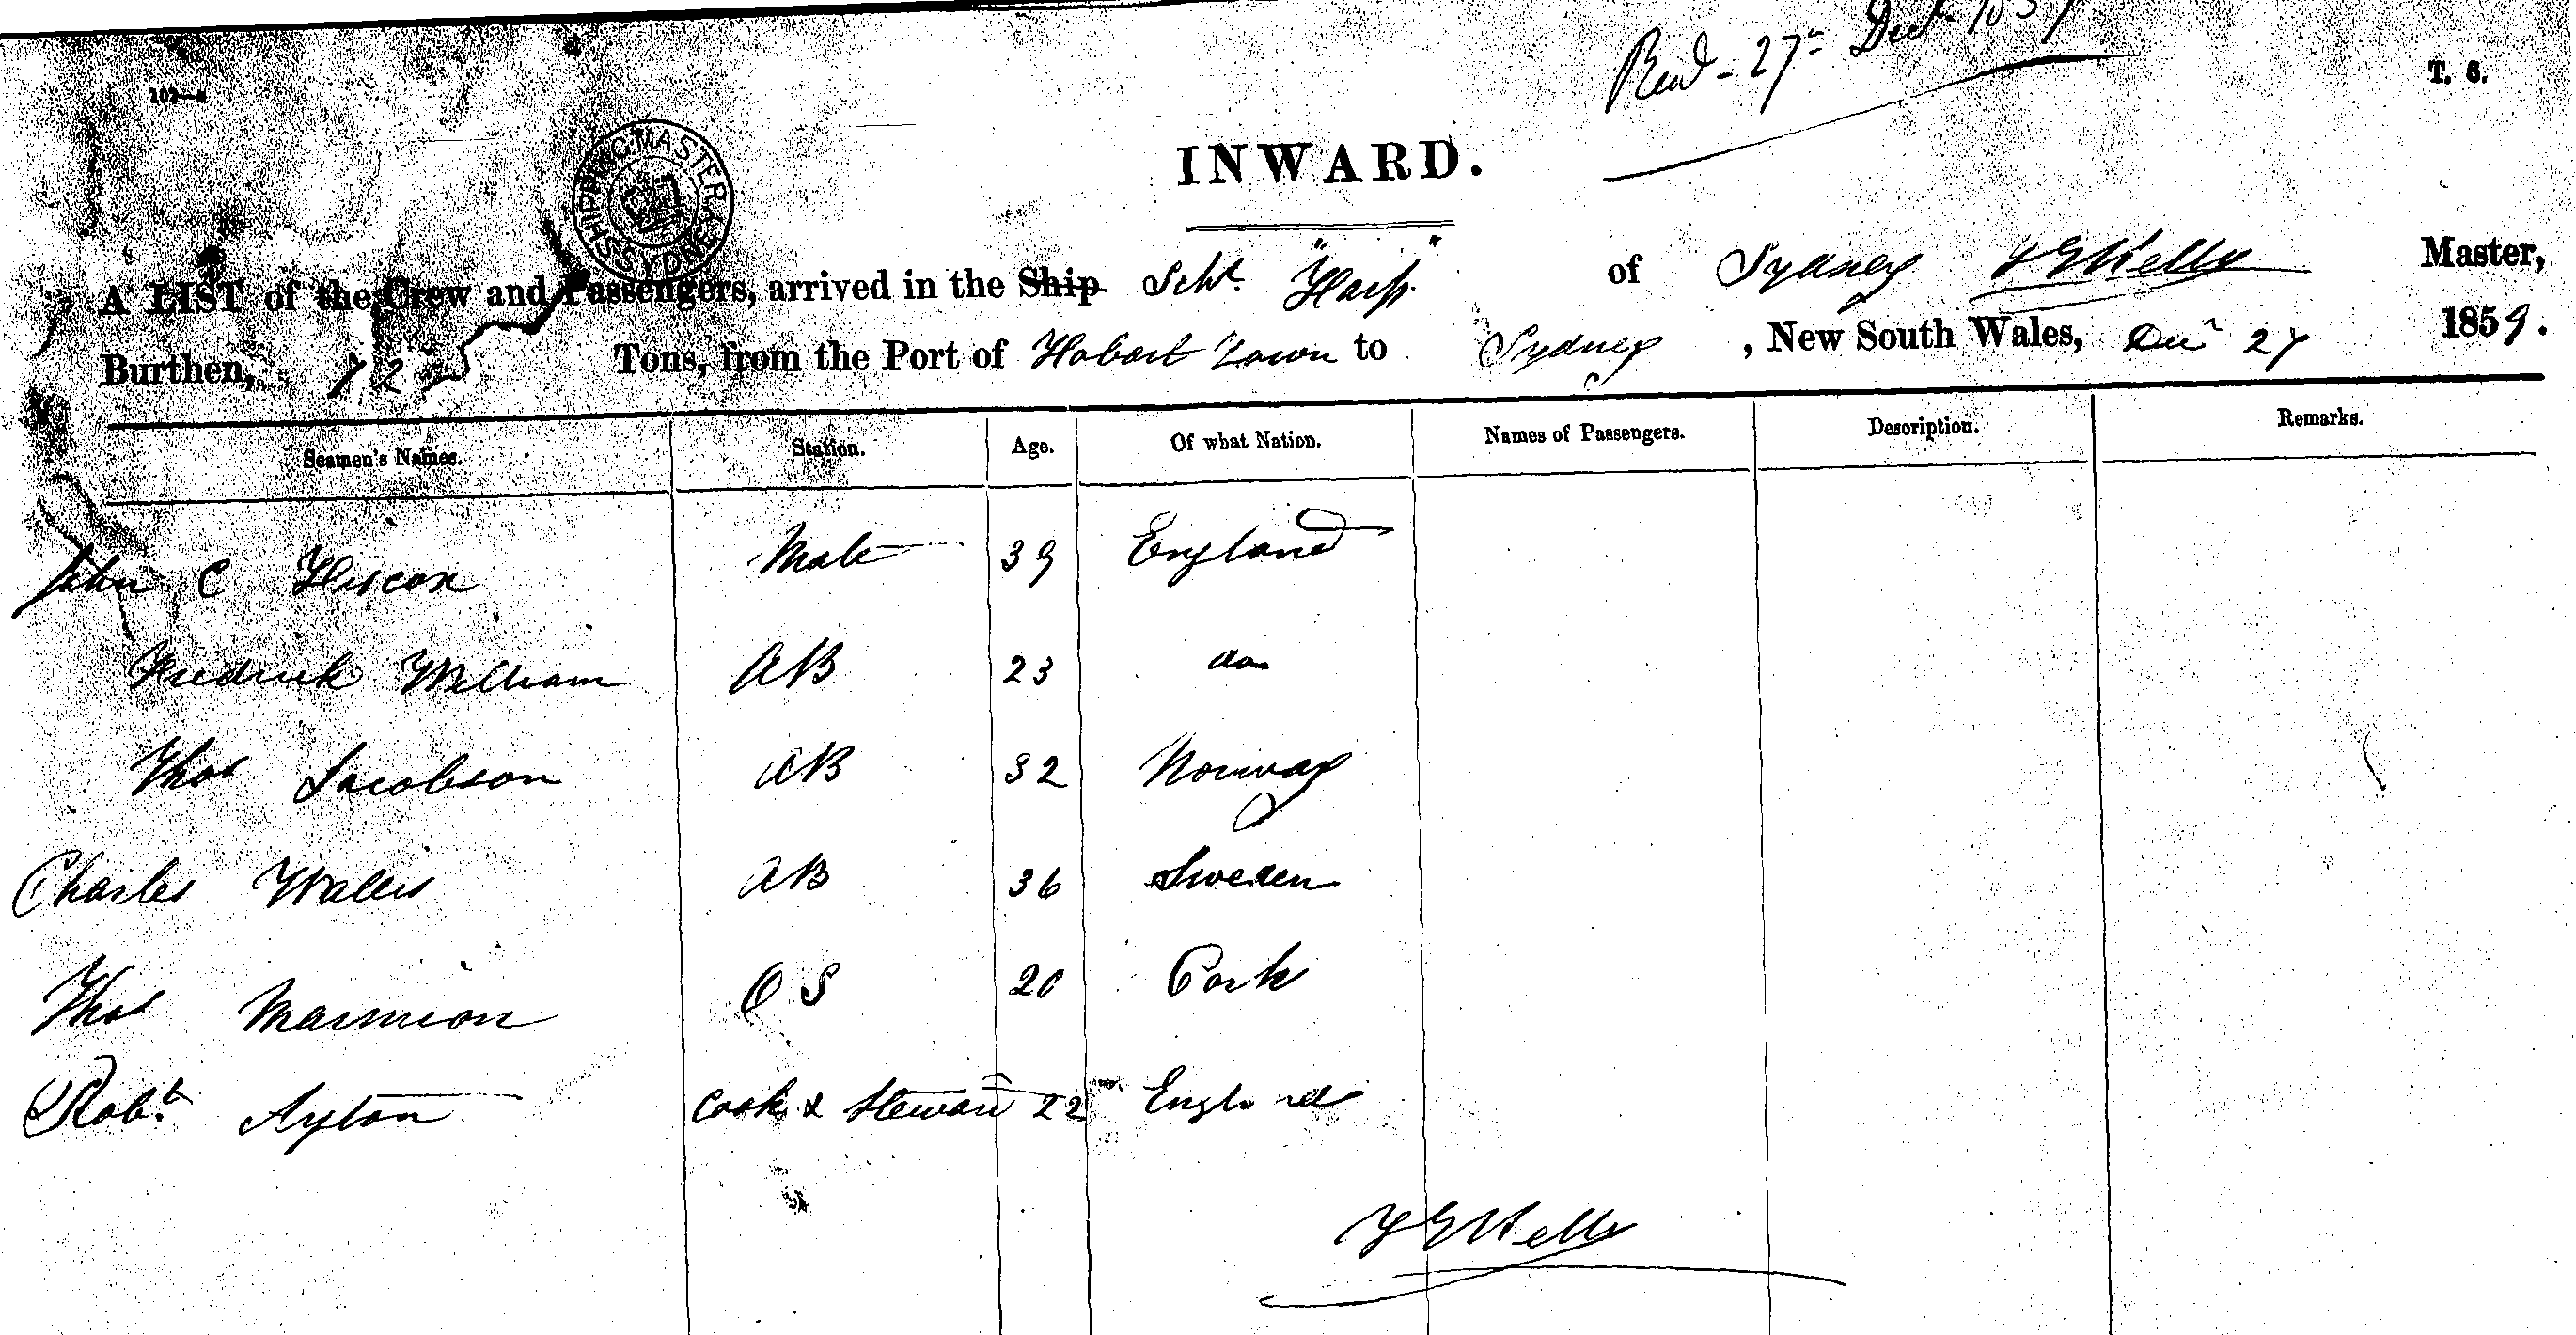 Recd - 27th Decr 1859
T. 6.
SHIPPING MASTER SYDNEY
INWARD.
A LIST of the Crew and Passengers, arrived in the Ship Schr "Harp" of Sydney Master,
Burthen, 72 Tons, from the Port of Hobart Town to Sydney, New South Wales, Decr 27 1859.
Seamen's Names. Station. Age. Of what Nation. Names of Passengers. Description. Remarks.
John C Hiscox Mate 39 England
Fredrick William AB 23 do
Thos Jacobson AB 32 Norway
Charles Wallis AB 36 Sweden
Thos Marmion OS 20 Cork
Robt Ayton Cook & Steward 22 England